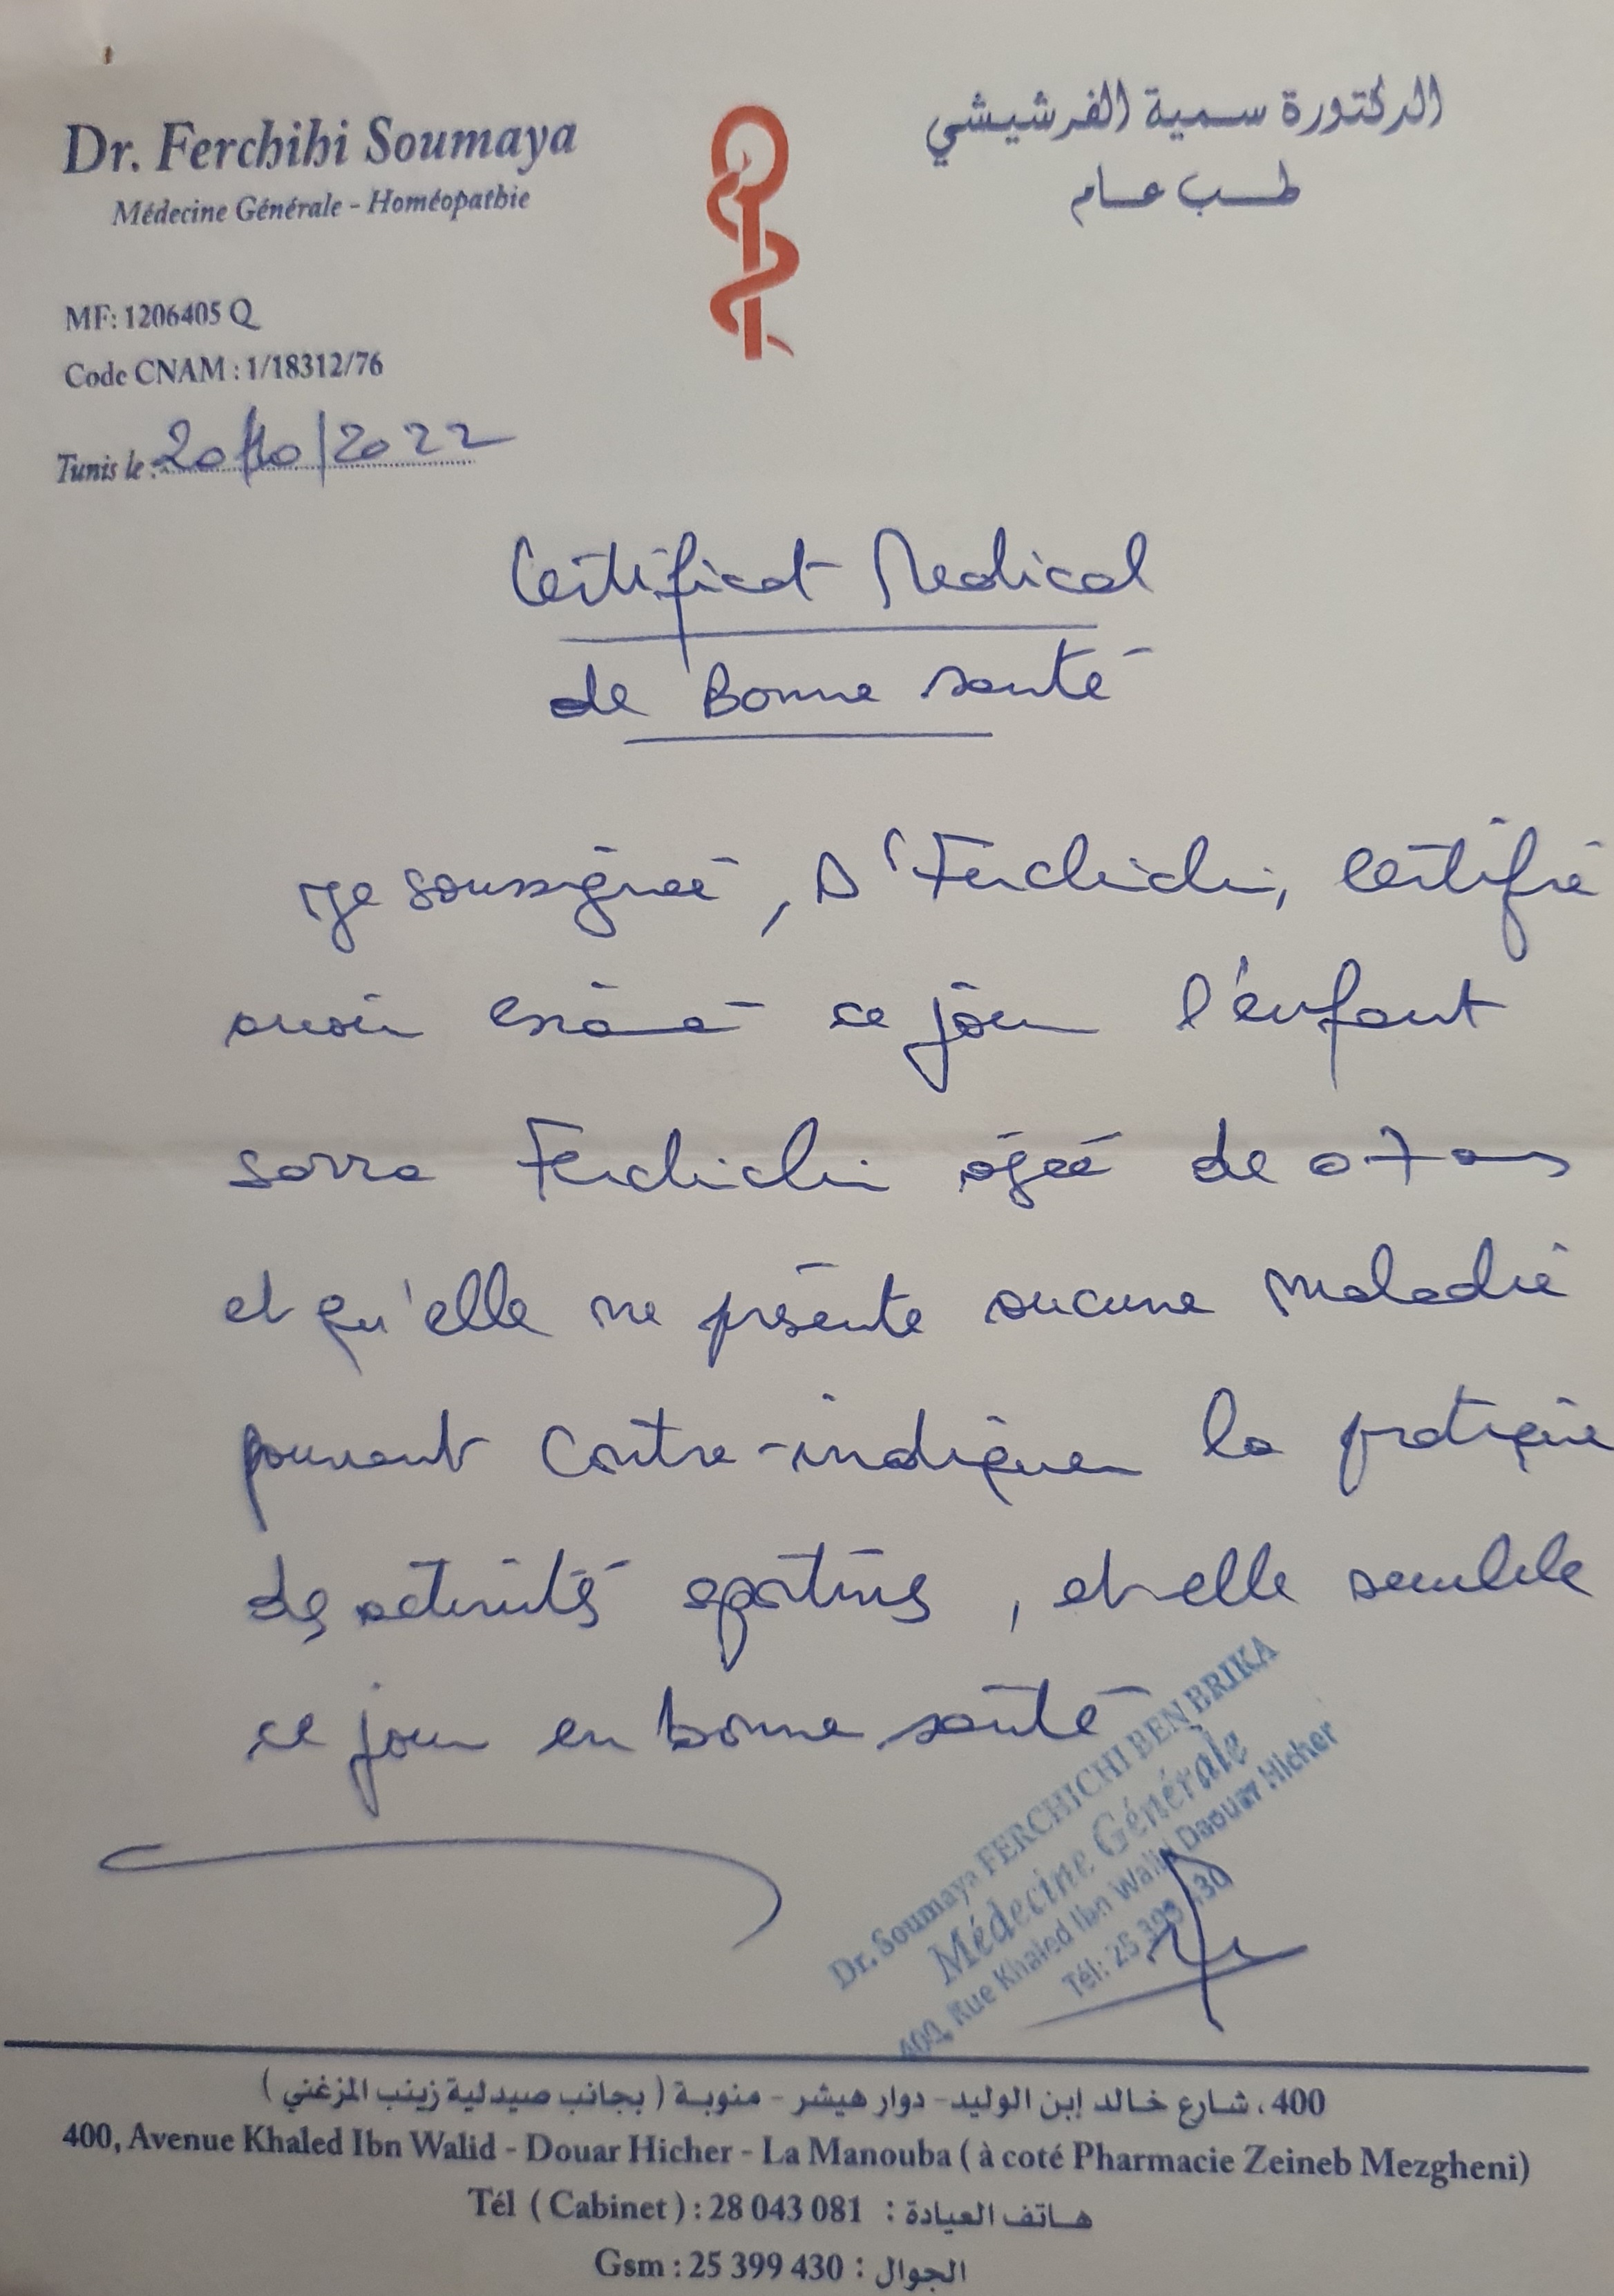 Dr. Ferchihi Soumaya
Médecine Générale - Homéopathie
الدكتورة سمية الفرشيشي
طب عام
MF: 1206405 Q
Code CNAM : 1/18312/76
Tunis le : 20/10/2022
Certificat Medical
de Bonne santé
Je soussignée, Dr Ferchichi, certifie
avoir examiné ce jour l'enfant
sarra Ferchichi agée de 07 ans
et qu'elle ne présente aucune maladie
pouvant contre-indiquer la pratique
des activités sportives, et elle semble
ce jour en bonne santé
Dr. Soumaya FERCHICHI BEN BRIKA
Médecine Générale
400, Rue Khaled Ibn Walid Daouar Hicher
Tél: 25 399 430
400، شارع خالد إبن الوليد- دوار هيشر - منوبة ( بجانب صيدلية زينب المزغني )
400, Avenue Khaled Ibn Walid - Douar Hicher - La Manouba ( à coté Pharmacie Zeineb Mezgheni)
Tél ( Cabinet ) : 28 043 081 : هاتف العيادة
Gsm : 25 399 430 : الجوال